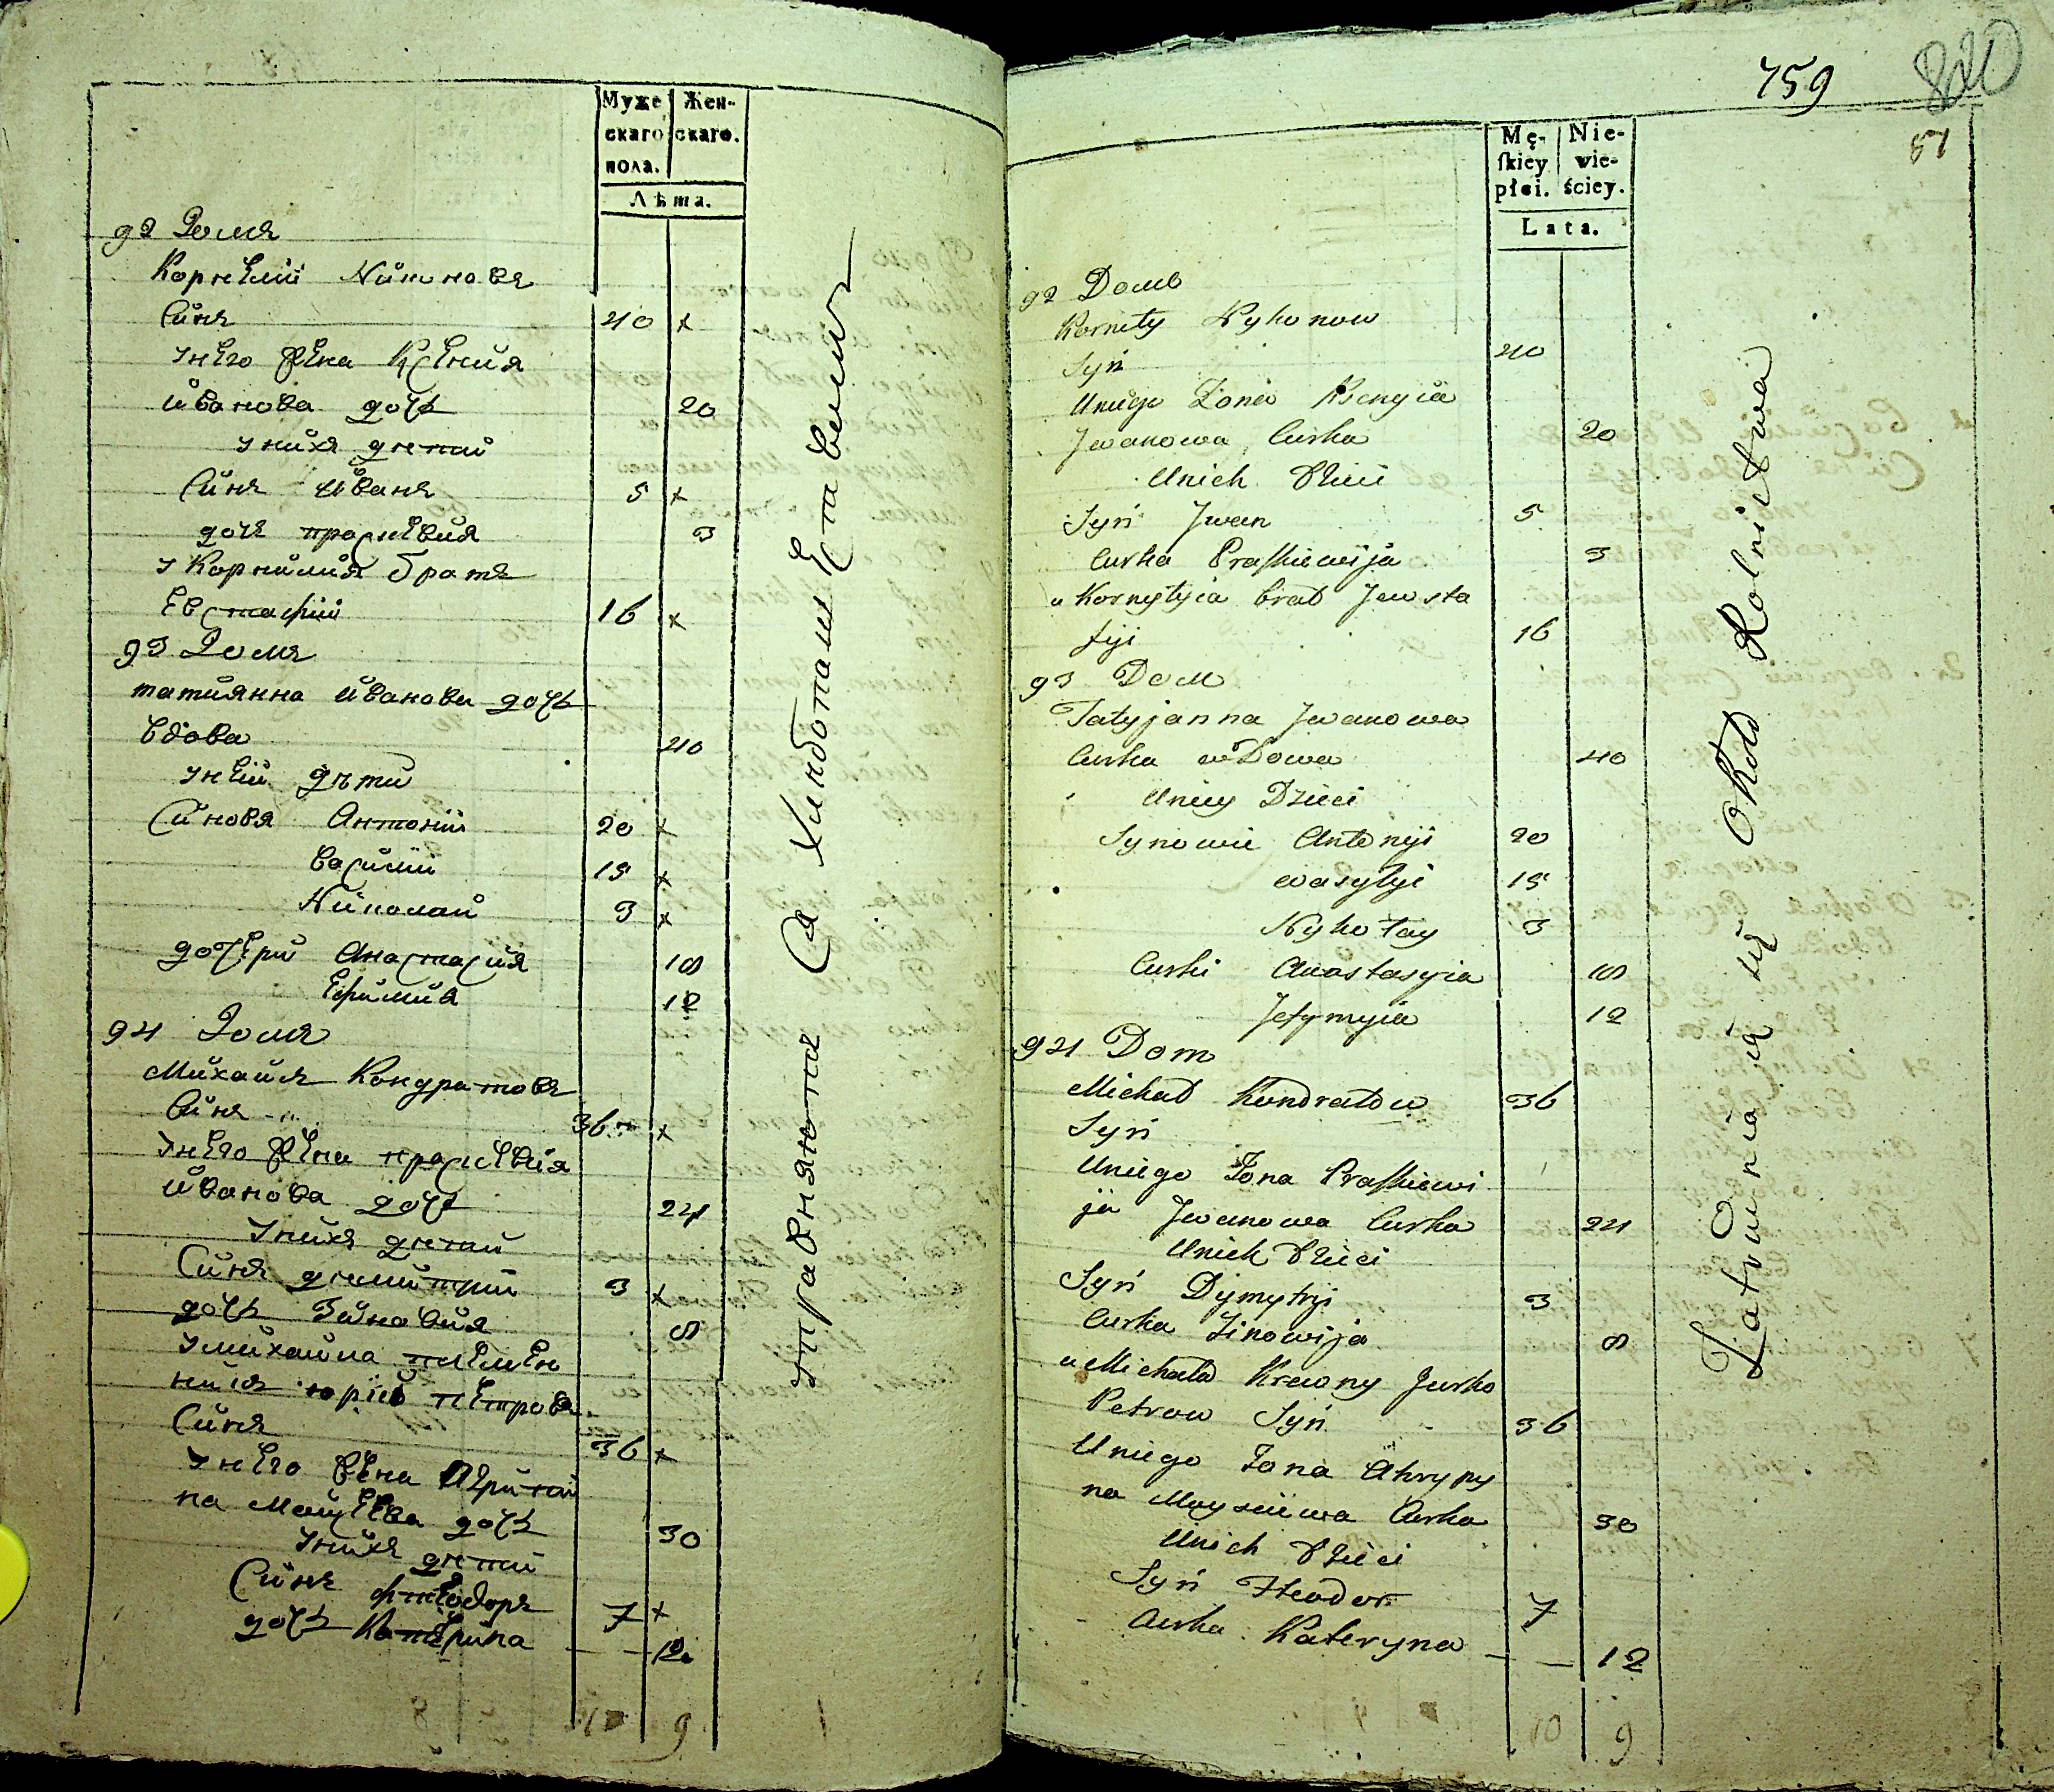 Муже Жен-
скаго скаго.
пола.
Лѣта.
92 Домъ
Корнелій Никоновъ
Синъ 40 х
Унего жена Ксенія
Иванова дочь 20
Унихъ дѣти
Синъ Иванъ 5 х
дочь Праскевия 3
У Корнилия братъ
Евстафій 16 х
93 Домъ
Татиянна Иванова дочь
вдова 40
Унеи дѣти
Синовя Антоній 20 х
Василій 15 х
Николай 3 х
дочери Анастасия 18
Ефимия 12
94 Домъ
Михаилъ Кондратовъ
Синъ 36 х
Унего жена праскевія
Иванова дочь 24
Унихъ дѣти
Синъ Димитрій 3 х
дочь Зиновия 8
У михаила племен
никъ юрій петровъ
Синъ 36 х
Унего жена Агрипи
на Моисеева дочь 30
Унихъ дѣти
Синъ Феодоръ 7 х
дочь Катерина 12
9
упражняются хлѣбопашествомъ
759 820
57
Mę- Nie-
ſkiey wie-
płci. ściey.
Lata.
92 Домъ
Kornely Nykonow
Syn 40
Uniego Żona Ksenyia
Jwanowa Curka 20
Unich Dzieci
Syn Jwan 5
Curka Praſkiewija 3
u Kornylyia brat Jewsta
fiji 16
93 Dom
Tatyjanna Jwanowa
Curka wdowa 40
Uniey Dzieci
Synowie Antonyi 20
wasylyi 15
Nykołay 3
Curki Anastasyia 18
Jefymyia 12
94 Dom
Michał Kondratow 36
Syn
Uniego Żona Praſkiewi
ja Jwanowa Curka 24
Unich Dzieci
Syn Dymytryi 3
Curka Zinowija 8
u Michała Krewny Jurko
Petrow Syn 36
Uniego Żona Ahrypy
na Moysiiewa Curka 30
Unich Dzieci
Syn Fteodor 7
Curka Kateryna 12
10 9
Zatrudniaią się około Rolnictwa